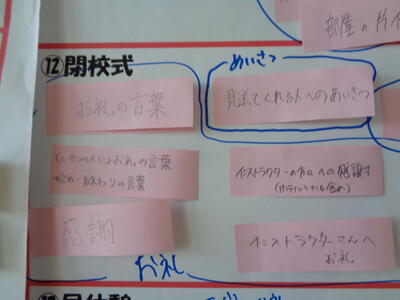 部屋の片付
⑫閉校式
めいさつ
お礼の言葉
見送てくれる人へのあいさつ
(しせつの人に)お礼の言葉
始め・終わりの言葉
インストラクターの方々への感謝
(ホテルとかも含め)
感謝
インストラクターさんへ
お礼
お礼